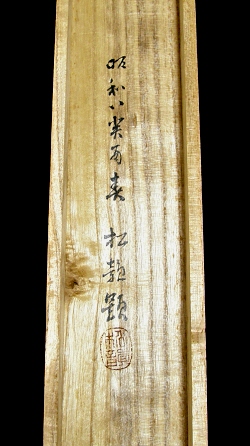 昭和八癸酉春 松韻題